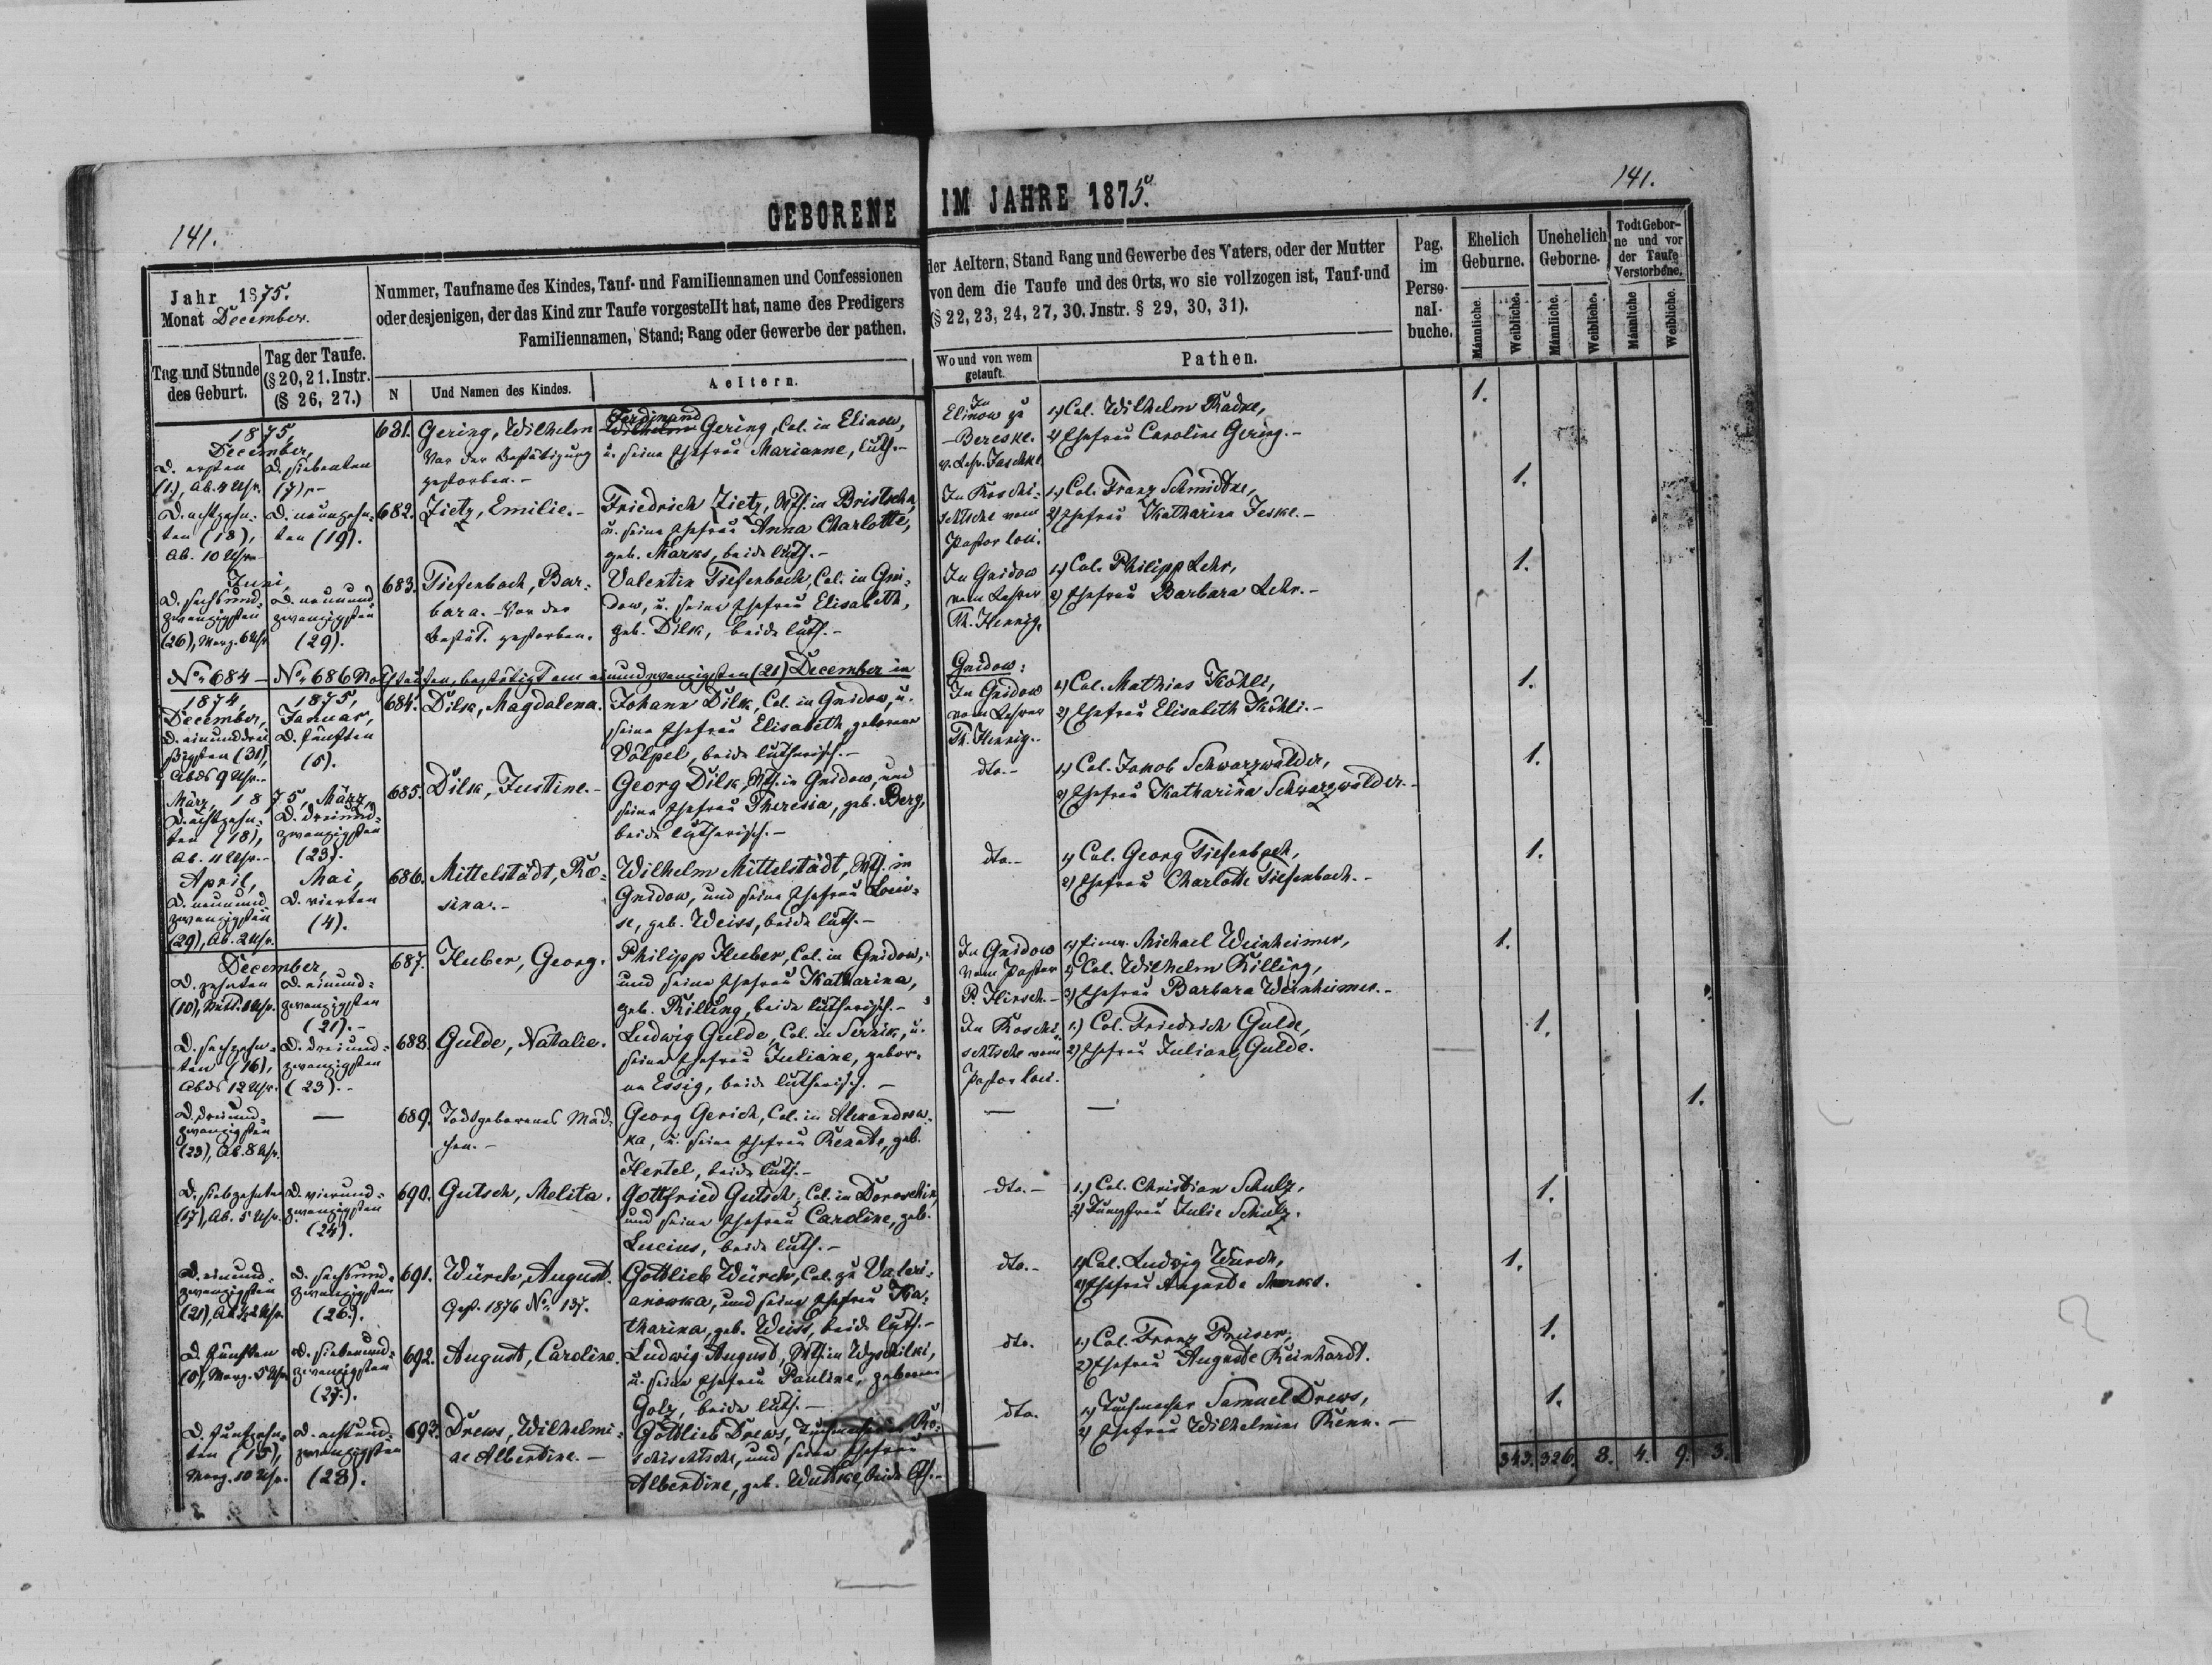 141.
GEBORENE
IM JAHRE 1875.
141.
Jahr 1875.
Monat December.
Tag und Stunde
des Geburt.
Tag der Taufe.
(§ 20, 21. Instr.
(§ 26, 27.)
Nummer, Taufname des Kindes, Tauf- und Familiennamen und Confessionen
oder desjenigen, der das Kind zur Taufe vorgestellt hat, name des Predigers
Familiennamen, Stand; Rang oder Gewerbe der pathen.
N
Und Namen des Kindes.
Aeltern.
der Aeltern, Stand Rang und Gewerbe des Vaters, oder der Mutter
von dem die Taufe und des Orts, wo sie vollzogen ist, Tauf-und
(§ 22, 23, 24, 27, 30. Jnstr. § 29, 30, 31).
Wo und von wem
getauft.
Pathen.
Pag.
im
Perso-
nal-
buche.
Ehelich
Geburne.
Unehelich
Geborne.
Todt Gebor-
ne und vor
der Taufe
Verstorbene.
Männliche.
Weibliche.
Männliche.
Weibliche.
Männliche
Weibliche.
1875,
December,
D. ersten
(1), Ab. 4 Uhr.
D. siebenten
(7).-
681.
Gering, Wilhelm
Vor der Bestätigung
gestorben.-
Ferdinand
Wilhelm Gering, Col. in Elinow,
u. seine Ehefrau Marianne, luth.-
In
Elinow zu
-Bereske.
v. Lehr. Jaschke
1.) Col. Wilhelm Radke,
2) Ehefrau Caroline Gering.-
1.
D. achtzehn-
ten (18),
Ab. 10 Uhr.
D. neunzehn-
ten (19).
682.
Zietz, Emilie.-
Friedrich Zietz, Wth. in Bristscha,
u. seine Ehefrau Anna Charlotte,
geb. Marks, beide luth.-
In Roschi-
schtsche vom
Pastor loci.
1.) Col. Franz Schmidtke,
2) Ehefrau Katharina Jeske.-
1.
Juni,
D. sechsund-
zwanzigsten
(26), Morg. 6 Uhr
D. neunund-
zwanzigsten
(29).
683.
Tiefenbach, Bar-
bara.- Vor der
Bestät. gestorben.
Valentin Tiefenbach, Col. in Gni-
dow, u. seine Ehefrau Elisabeth,
geb. Dilk, beide luth.-
In Gnidow
vom Lehrer
Th. Hennig.
1.) Col. Philipp Lehr,
2) Ehefrau Barbara Lehr.-
1.
No. 684 - No. 686 Nothtaufen, bestätigt am einundzwanzigsten (21) December in
Gnidow:
1874,
December,
D. einunddrei
ßigsten (31),
Abds 9 Uhr.-
1875,
Januar,
D. fünften
(5).
684.
Dilk, Magdalena.
Johann Dilk, Col. in Gnidow, u.
seine Ehefrau Elisabeth, geborene
Völpel, beide lutherisch.-
In Gnidow
vom Lehrer
Th. Hennig.-
1.) Col. Mathias Köhli,
2) Ehefrau Elisabeth Köhli.-
1.
März, 1875, März,
D. achtzehn-
ten (18),
Ab. 11 Uhr.-
D. dreiund-
zwanzigsten
(23).
685.
Dilk, Justine.-
Georg Dilk, Wth. in Gnidow, und
seine Ehefrau Theresia, geb. Berg,
beide lutherisch.-
dto.-
1.) Col. Jakob Schwarzwälder,
2) Ehefrau Katharina Schwarzwälder.-
1.
April,
D. neunund
zwanzigsten
(29), Ab. 2 Uhr.
Mai,
D. vierten
(4).
686.
Mittelstädt, Ro-
sina.-
Wilhelm Mittelstädt, Wth. in
Gnidow, und seine Ehefrau Loui-
se, geb. Weiss, beide luth.-
dto.-
1) Col. Georg Tiefenbach,
2) Ehefrau Charlotte Tiefenbach.-
1.
December,
D. zehnten
(10), Mitt. Uhr.
D. einund-
zwanzigsten
(21).-
687.
Huber, Georg.
Philipp Huber, Col. in Gnidow,
und seine Ehefrau Katharina,
geb. Killing, beide lutherisch.-
In Gnidow
vom Pastor
P. Hirsch.-
1) Michael Weinheimer,
2) Col. Wilhelm Killing,
3) Ehefrau Barbara Weinheimer.-
1.
D. sechzehn-
ten (16),
Abds 12 Uhr.
D. dreiund-
zwanzigsten
(23).-
688.
Gulde, Natalie.
Ludwig Gulde, Col. in Sernik, u.
seine Ehefrau Juliane, gebor-
ne Essig, beide lutherisch.-
In Roschi-
schtsche vom
Pastor loci.
1.) Col. Friedrich Gulde,
2) Ehefrau Juliane Gulde.
1.
D. dreiund-
zwanzigsten
(23), Ab. 8 Uhr.
—
689.
Todtgeborenes Mäd-
chen.-
Georg Gerich, Col. in Alexandrow-
ka, u. seine Ehefrau Renate, geb.
Hertel, beide luth.-
—
—
1.
D. siebzehnten
(17), Ab. 5 Uhr.
D. vierund-
zwanzigsten
(24).
690.
Gutsch, Melita.
Gottfried Gutsch, Col. in Doroschin,
und seine Ehefrau Caroline, geb.
Lucius, beide luth.-
dto.-
1.) Col. Christian Schulz,
2) Jungfrau Julie Schulz.
1.
D. einund-
zwanzigsten
(21), Ab. ½2 Uhr.
D. sechsund-
zwanzigsten
(26).
691.
Würch, August.
Gest. 1876 No. 137.
Gottlieb Würch, Col. zu Valeri-
anowka, und seine Ehefrau Ka-
tharina, geb. Weiss, beide luth.-
dto.-
1) Col. Ludwig Würch,
2) Ehefrau Auguste Marks.
1.
D. fünften
(5), Morg. 5 Uhr
D. siebenund-
zwanzigsten
(27).
692.
August, Caroline.
Ludwig August, Wth. in Wyschilki,
u. seine Ehefrau Pauline, geborene
Golz, beide luth.-
dto.
1.) Col. Franz Preuser,
2) Ehefrau Auguste Reinhardt.
1.
D. fünfzehn-
ten (15),
Morg. 10 Uhr.
D. achtund-
zwanzigsten
(28).
693.
Drews, Wilhelmi-
ne Albertine.-
Gottlieb Drews, Tuchmacher in Ro-
schischtsche, und seine Ehefrau
Albertine, geb. Wutzke, beide lth.-
dto.
1.) Tuchmacher Samuel Drews,
2) Ehefrau Wilhelmine Renn.-
1.
343. 326. 8. 4. 9. 3.